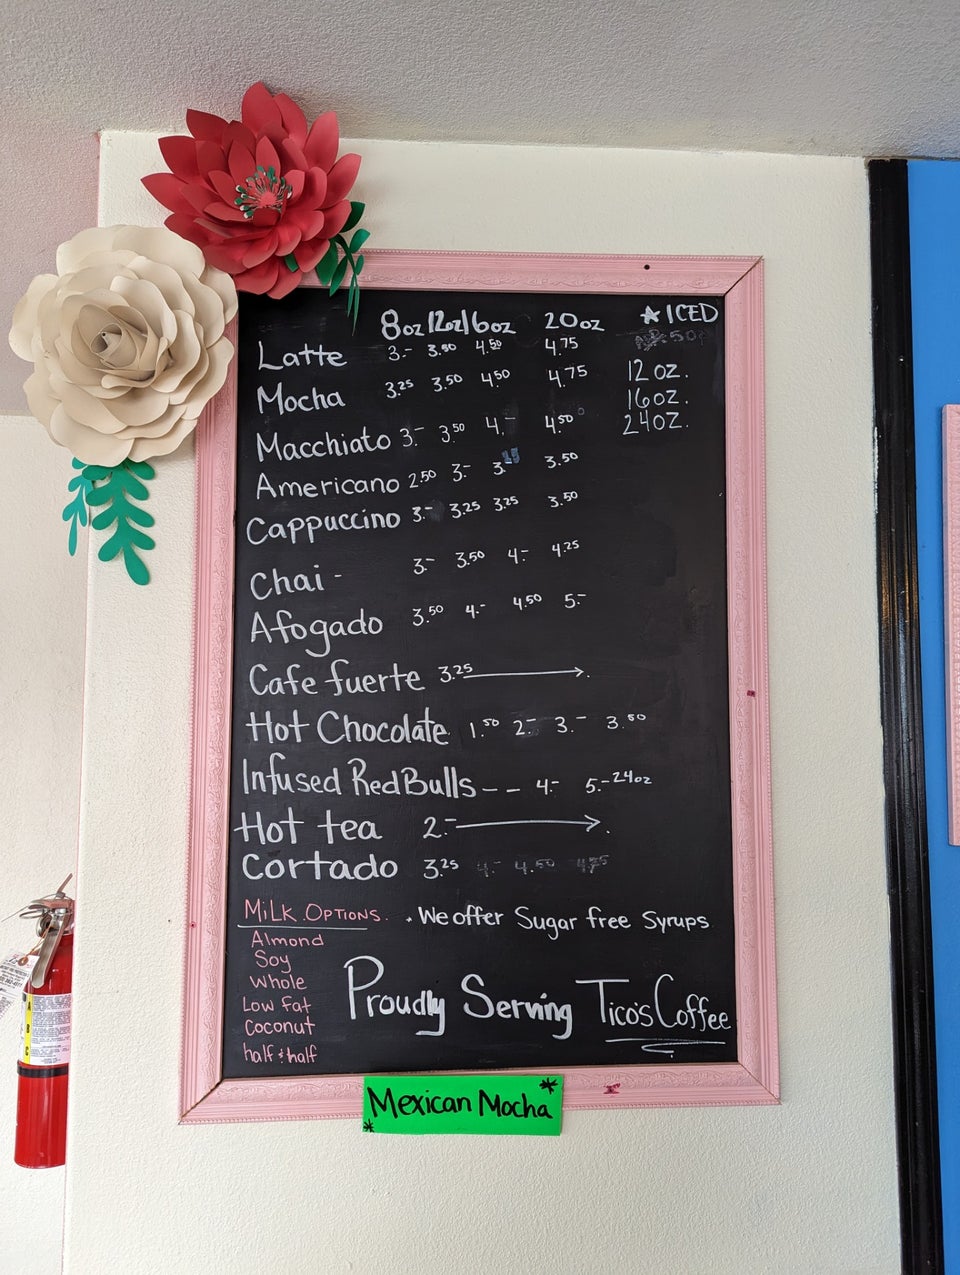 8oz 12oz 16oz 20oz ★ ICED
Latte 3.- 3.50 4.50 4.75
Mocha 3.25 3.50 4.50 4.75
12 oz.
16 oz.
24 oz.
Macchiato 3.- 3.50 4.- 4.50
Americano 2.50 3.- 3.25 3.50
Cappuccino 3.- 3.25 3.25 3.50
Chai - 3.- 3.50 4.- 4.25
Afogado 3.50 4.- 4.50 5.-
Cafe fuerte 3.25 →.
Hot Chocolate 1.50 2.- 3.- 3.50
Infused RedBulls - - 4.- 5.- 24oz
Hot tea 2.- →.
Cortado 3.25 4.- 4.50 4.75
MiLK OPTIONS. . We offer Sugar free Syrups.
Almond
Soy
Whole
Low Fat
Coconut
half & half
Proudly Serving Tico's Coffee
*Mexican Mocha*
A B C